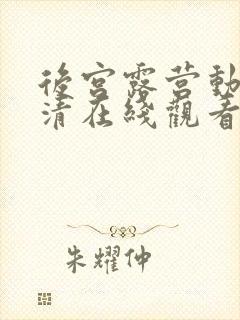 後宮露营動
清在綫觀看
朱耀仲